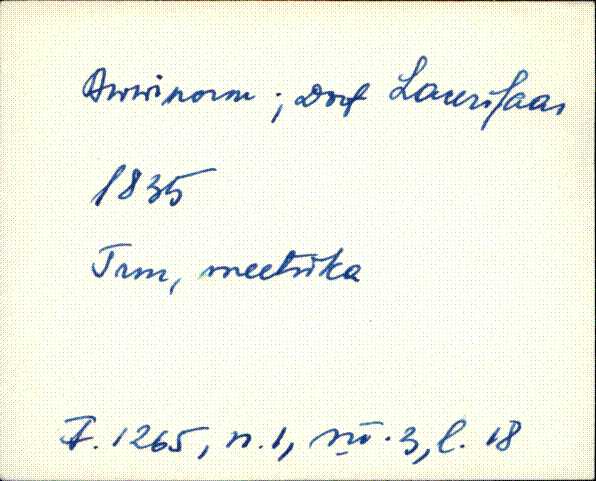 Awwinorm; Dorf Laurisaar
1835
Trm, meetrika
F. 1265, n. 1, sü. 3, l. 18